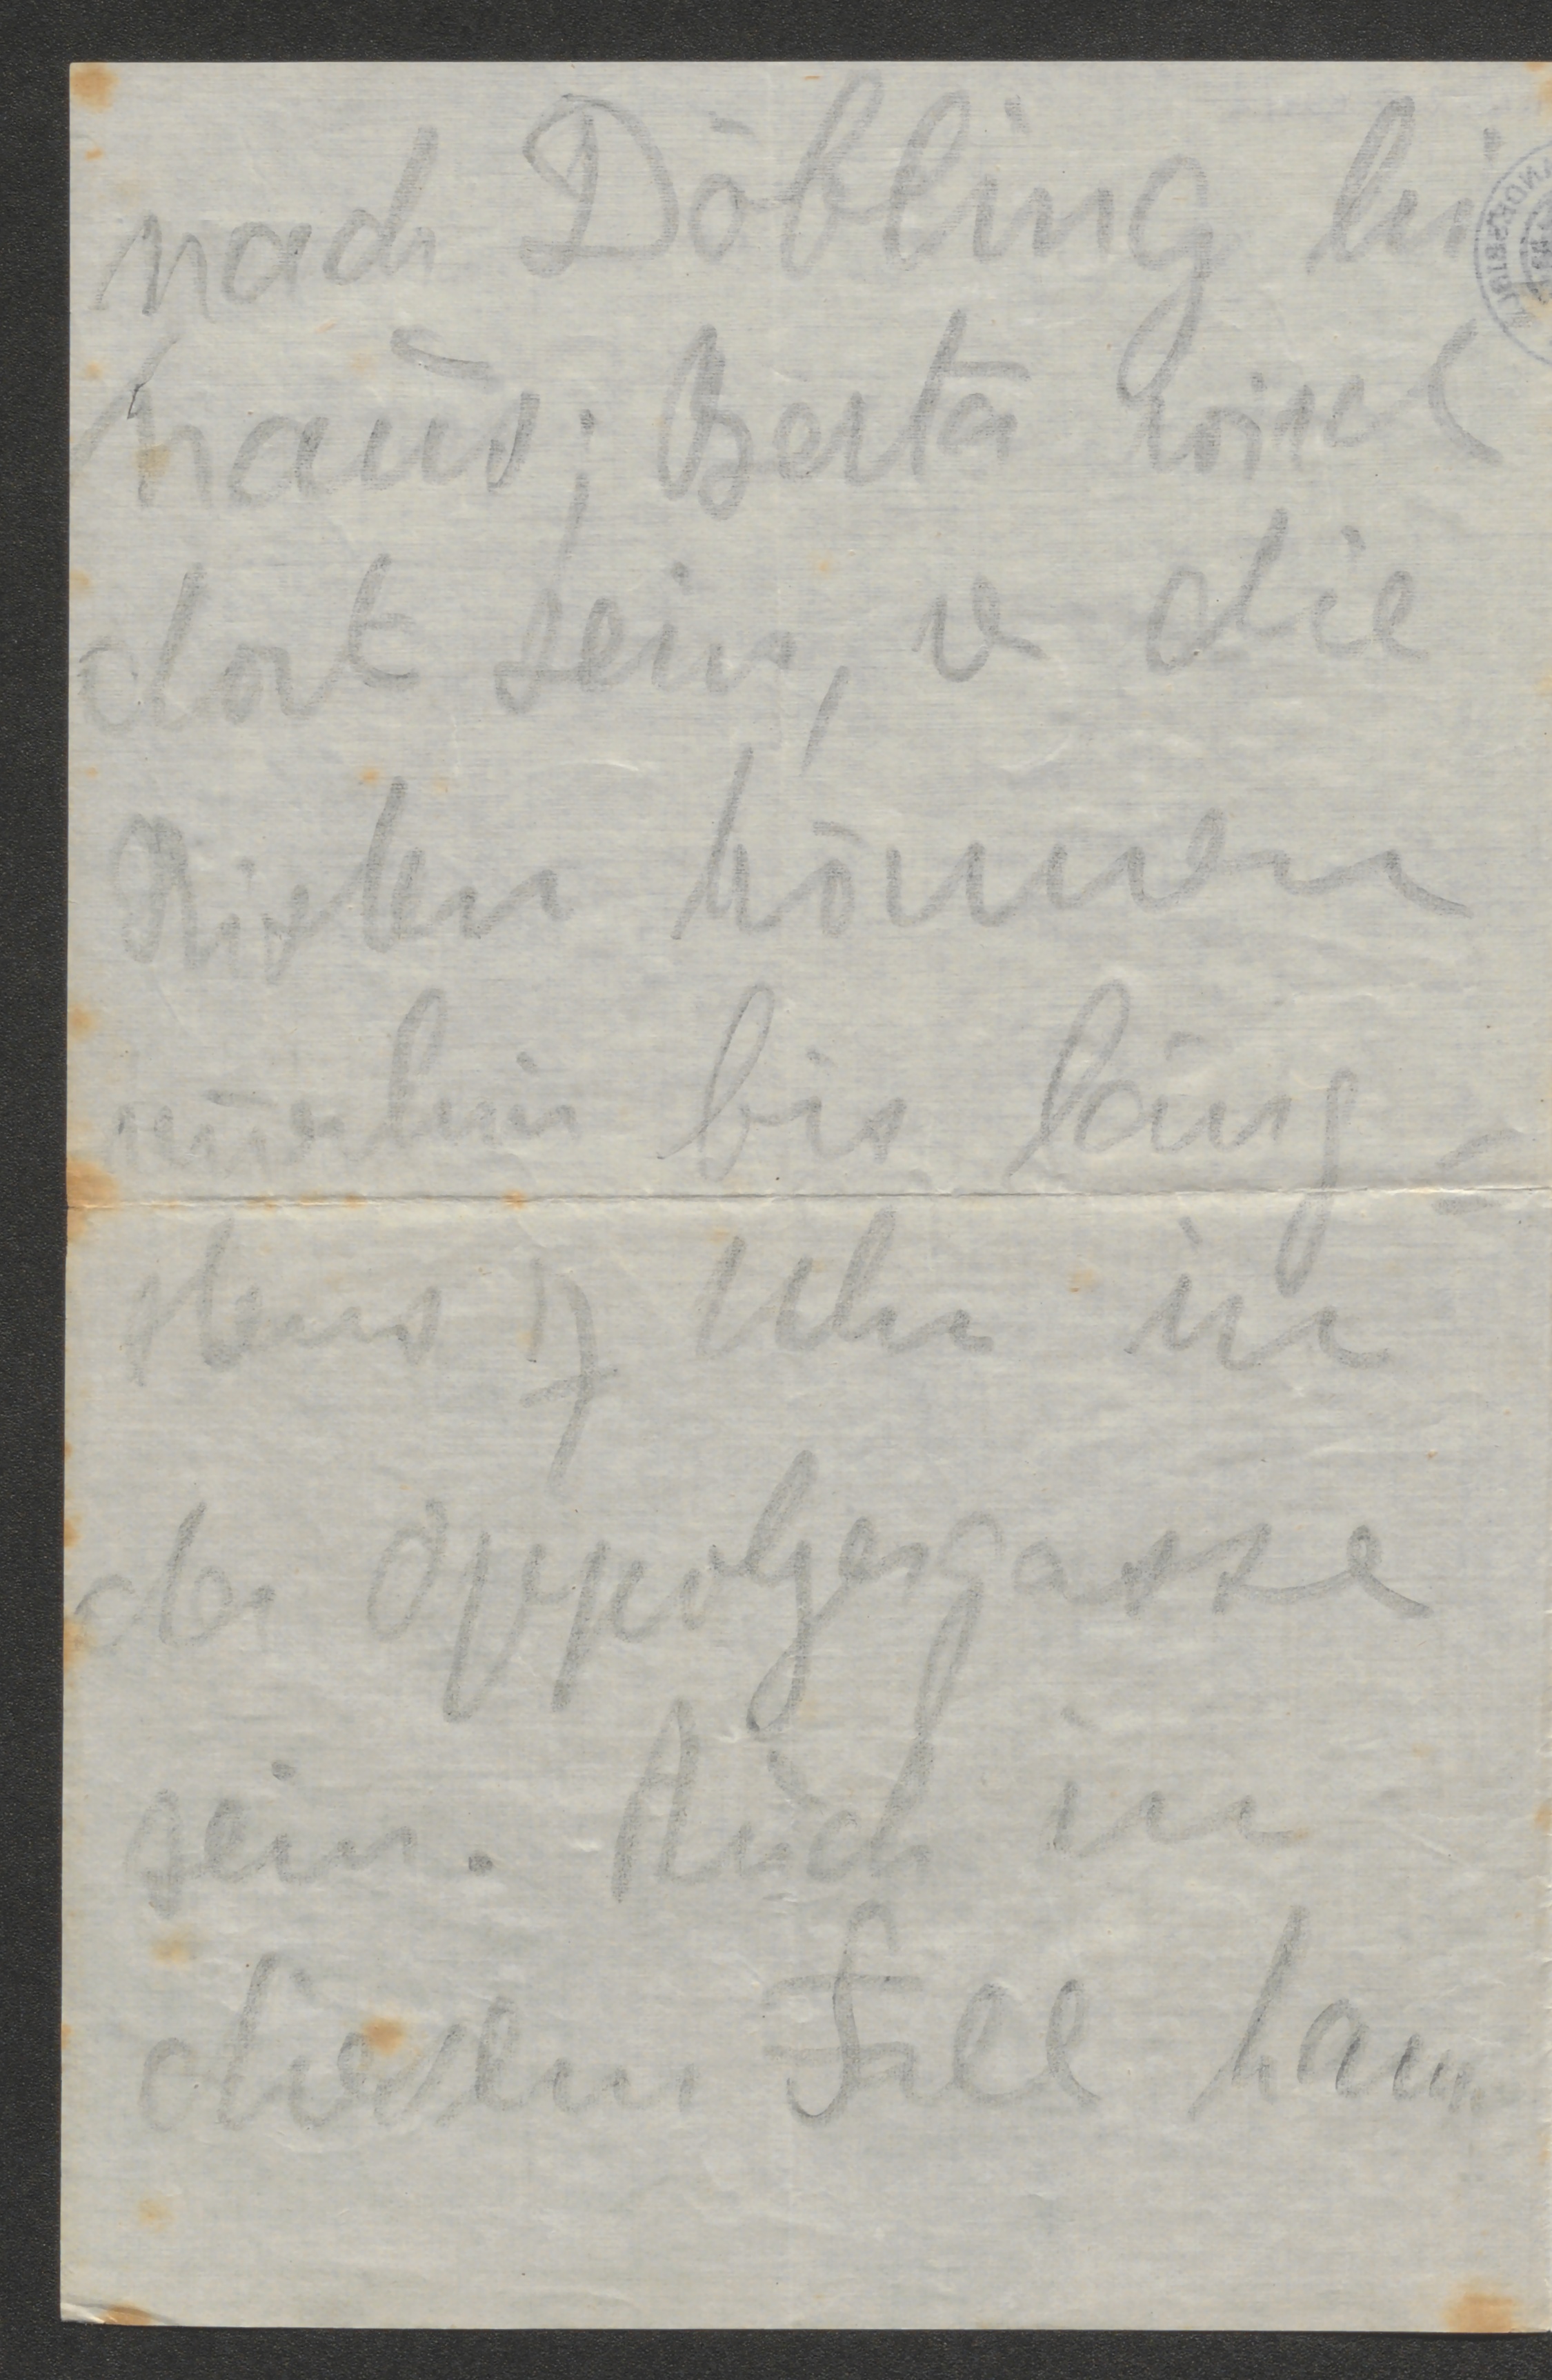 nach Döbling hi
naus; Berta wird
dort sein, u die
Kisten können
immerhin bis läng-
stens 17 Uhr in
der Oppolzergasse
sein. Auch in
diesem Fall kann